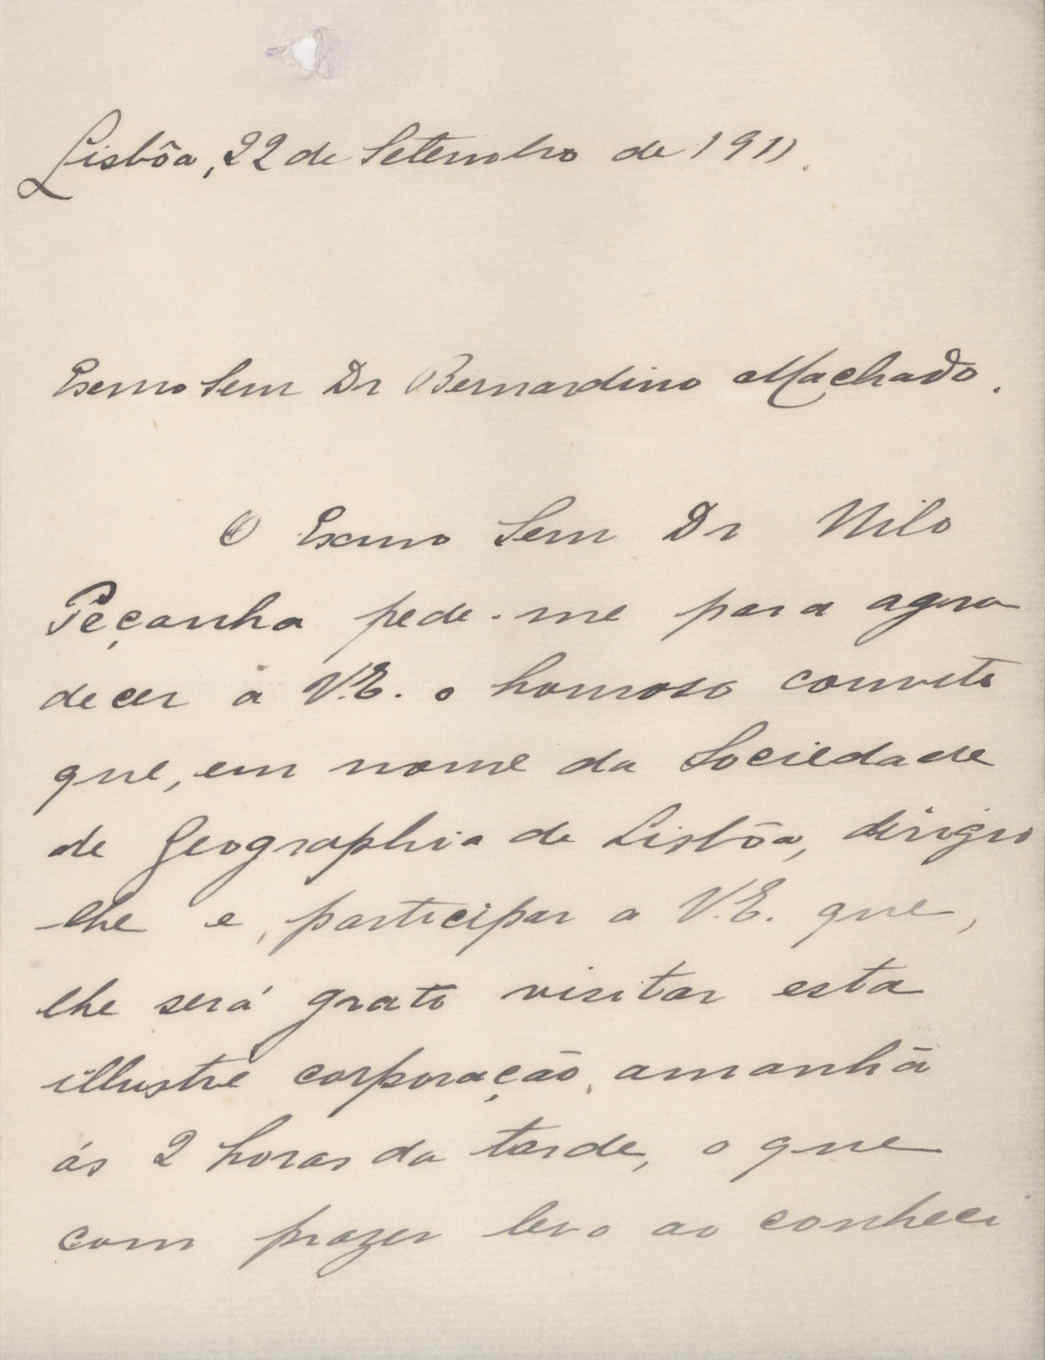 Lisbôa, 22 de Setembro de 1911.
Exmo Senr Dr Bernardino Machado.
O Exmo Senr Dr Nilo
Peçanha pede-me para agra
decer a V.E. o honroso convite
que, em nome da Sociedade
de Geographia de Lisbôa, dirigio
lhe e, participar a V.E. que,
lhe será grato visitar esta
illustre corporação, amanhã
ás 2 horas da tarde, o que
com prazer levo ao conheci